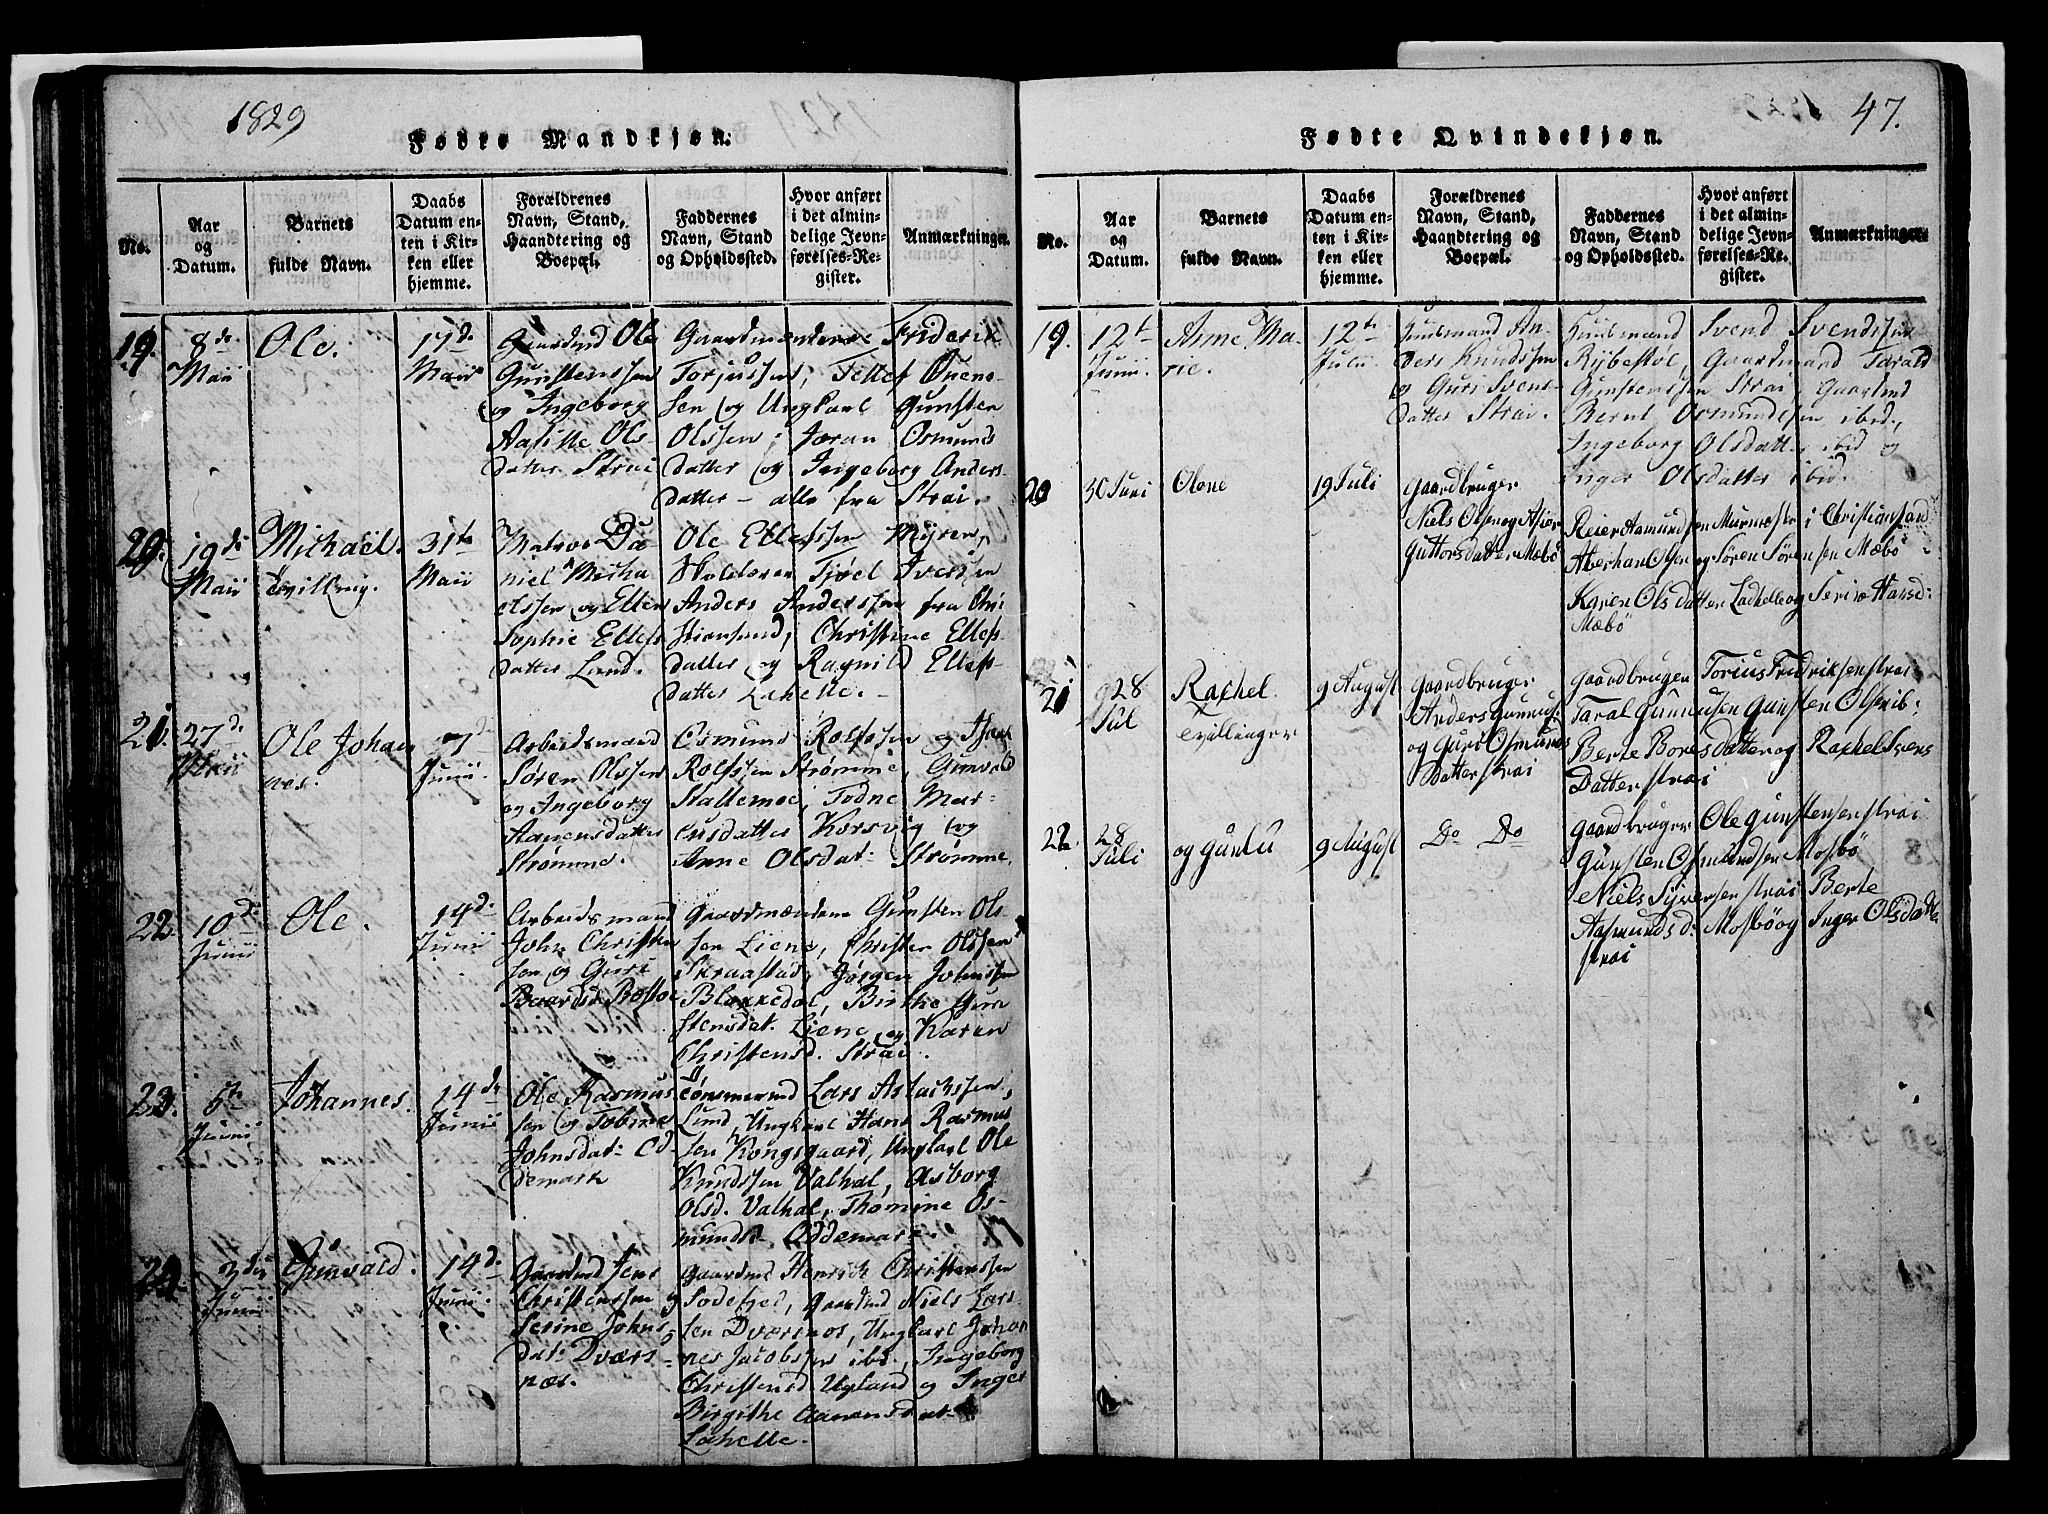 1829
Fødte Mandkjøn.
No.
Aar
og
Datum.
Barnets
fulde Navn.
Daabs
Datum en-
ten i Kir-
ken eller
hjemme.
Forældrenes
Navn, Stand,
Haandtering og
Boepæl.
Faddernes
Navn, Stand
og Opholdssted.
Hvor anført
i det almin-
delige Jevn-
førelses-Re-
gister.
Anmærkninger.
19.
8de
Maii
Ole.
17d.
Maii
Gaardmd Ole
Gunstenssen
og Ingeborg
Olsdatter Strai
Gaardmændene Friderik
Torjussen, Tellef Ouens-
sen og Ungkarl Gunsten
Olssen; Joran Osmunds
datter og Ingeborg Anders-
datter - alle fra Strai.
20.
19de
Maii
Michael.
tvilling.
31te
Maii
Matros Da-
niel Micha-
elssen og Ellen
Sophie Ellefs
datter Lund.
Ole Ellefssen Myren,
Skolelærer Tjøel Iverssen
Anders Anderssen fra Chri
stiansund, Christine Ellefs-
datter og Ragnild Ellefs-
datter Lahelle.
21.
27de
Maii
Ole Johan
nes.
7d
Junii.
Arbeidsmand
Søren Olssen
og Ingeborg
Aanensdatter
Strømme.
Osmund Rolfssen og
Rolfssen Strømme, Gunvald
Stallemoe, Todne Mar-
cusdatter Korsvig og
Anne Olsdat. Strømme.
22.
10de
Junii
Ole.
14d.
Junii
Arbeidsmand
John Christen
sen og Guri
Baardsd.
Gaardmændene Gunsten Ols-
sen Liene, Christen Olssen
Skraastad, Jørgen Johnssen
Blakkedal, Birthe Gun
stensdat. Liene og Karen
Christensd. Strai.
23.
5te
Junii
Johannes.
14de
Junii
Ole Rasmus
sen og Tobine
Johnsdat. Od
demark
Tømmermd Lars Aslachssen,
Lund, Ungkarl Hans Rasmus
sen Kongsgaard, Ungkarl Ole
Knudssen Valhal, Asborg
Olsd. Valhal, Thomine Os-
mundsd. Oddemark.
24.
3die
Junii
Gunvald.
14d.
Junii.
Gaardmd Jens
Christenssen og
Serine Johns-
dat. Dværs-
næs.
Gaardmd Henrich Christenssen
Sodefjed, gaardmd Niels Lars-
sen Dværsnæs, Ungkarl Johan
nes Jacobssen ibd., Ingeborg
Christensd Ugland og Inger
Birgithe Aanensdat.
Lahelle.
47.
Fødte Qvindekjøn.
No.
Aar
og
Datum.
Barnets
fulde Navn.
Daabs
Datum en-
ten i Kir-
ken eller
hjemme.
Forældrenes
Navn, Stand,
Haandtering og
Boepæl.
Faddernes
Navn, Stand
og Opholdssted.
Hvor anført
i det almin-
delige Jevn-
førelses-Re-
gister.
Anmærkninger.
19.
12te
Junii.
Anne Ma-
rie.
12te
Julii
Huusmand An-
ders Knudssen
og Guri Svens-
datter Strai.
Huusmænd Svend Svendssen
Rybestol, Gaardmand Tarald
Gunstenssen Strai, Gaardmd
Bernt Osmundssen ibid.,
Ingeborg Olsdatt. ibid og
Inger Olsdatter ibid.
20
30 Juni
Olene
19 Juli
Gaardbruger
Niels Olsen og Asier
Guttorsdatter Mæbø
Reier Asmundsen Murmester i Christiansand
Aberhan Olsen og Søren Sørensen Mæbø
Karen Olsdatter Ladhelle og Serine Hansd:
Mæbø
21
28
Jul
Rachel
Tvillinger
9 August
Gaardbruger
Anders Gunnus:
og Guri Osmunds
Datter Strai
Gaardbruger Torius Fredriksen Strai
Taral Gunnusen Gunsten Olsen ib:
Berte Boresdatter og Rachel Svens
Datter Strai
22.
28
Juli
og Gunlu
9 August
Do Do
Gaardbruger Ole Gunstensen Strai
Gunsten Osmundsen Mosbø
Niels Syversen Strai Berte
Aasmundsd: Mosbø og Inger Olsdatte
Strai